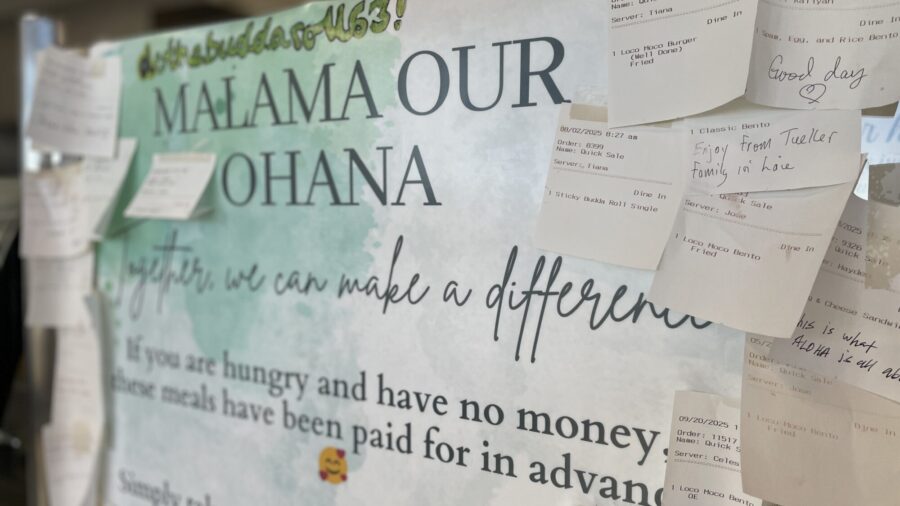 MALAMA OUR
OHANA
Together, we can make a difference
If you are hungry and have no money,
these meals have been paid for in advanc
Simply
Name: Qui
Server: Tiana
Dine In
1 Loco Moco Burger
(Well Done)
Fried
Dine In
1 Spam, Egg, and Rice Bento
Good day
08/02/2025 8:27 am
Order: 8399
Name: Quick Sale
Server: Tiana
Dine In
1 Sticky Budda Roll Single
1 Classic Bento
Enjoy from Tueller
family in Laie
Quick Sale
Server: Jose
Dine In
1 Loco Moco Bento
Fried
9326
Hayden
& Cheese Sandwi
This is what
ALOHA is all abo
05/2
Order
Name: Quick Sale
Server: Jose
1 Loco Moco Bento
Fried
Dine In
09/20/2025 1
Order: 11517
Name: Quick S
Server: Celes
1 Loco Moco Bento
OE